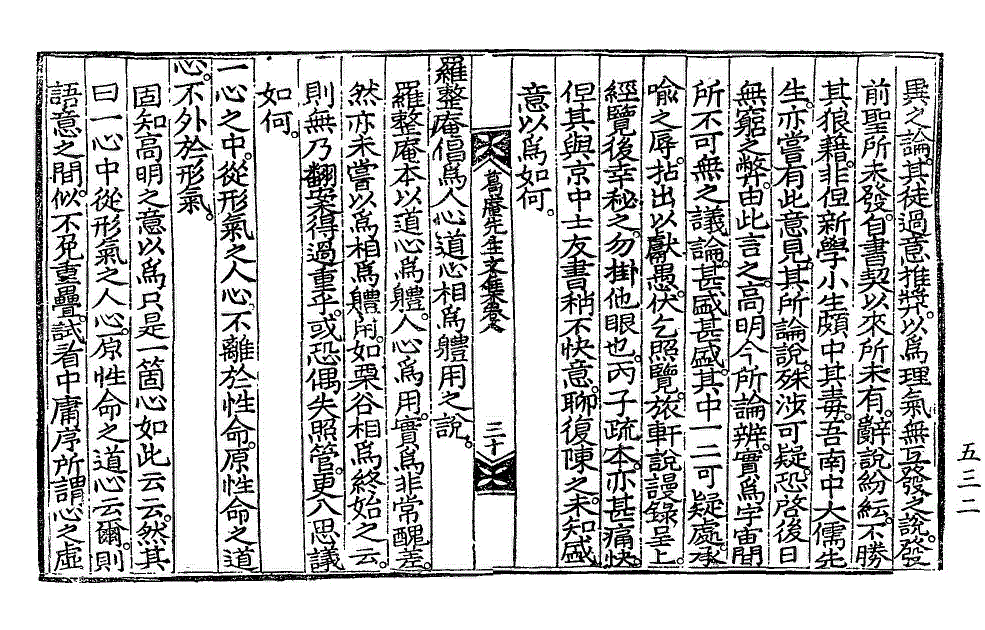 異之論其徒過意推奬以爲理氣無互發之說發
前聖所未發自書契以來所未有辭說紛紜不勝
其狼藉非但新學小生頗中其毒吾南中大儒先
生亦嘗有此意見其所論說殊涉可疑恐啓後日
無窮之弊由此言之高明今所論辨實爲宇宙間
所不可無之議論甚盛甚盛其中一二可疑處承
喩之辱拈出以獻愚伏乞照覽旅軒說謾錄呈上
經覽後幸秘之勿掛他眼也丙子疏本亦甚痛快
但其與京中士友書稍不快意聊復陳之未知盛
意以爲如何
葛庵先生文集卷
三十
羅整庵倡爲人心道心相爲軆用之說
羅整庵本以道心爲軆人心爲用實爲非常醜差
然亦未嘗以爲相爲軆用如栗谷相爲終始之云
則無乃翻案得過重乎或恐偶失照管更入思議
如何
一心之中從形氣之人心不離於性命原性命之道
心不外於形氣
固知高明之意以爲只是一箇心如此云云然其
曰一心中從形氣之人心原性命之道心云爾則
語意之間似不免重疊試看中庸序所謂心之虛
五三二